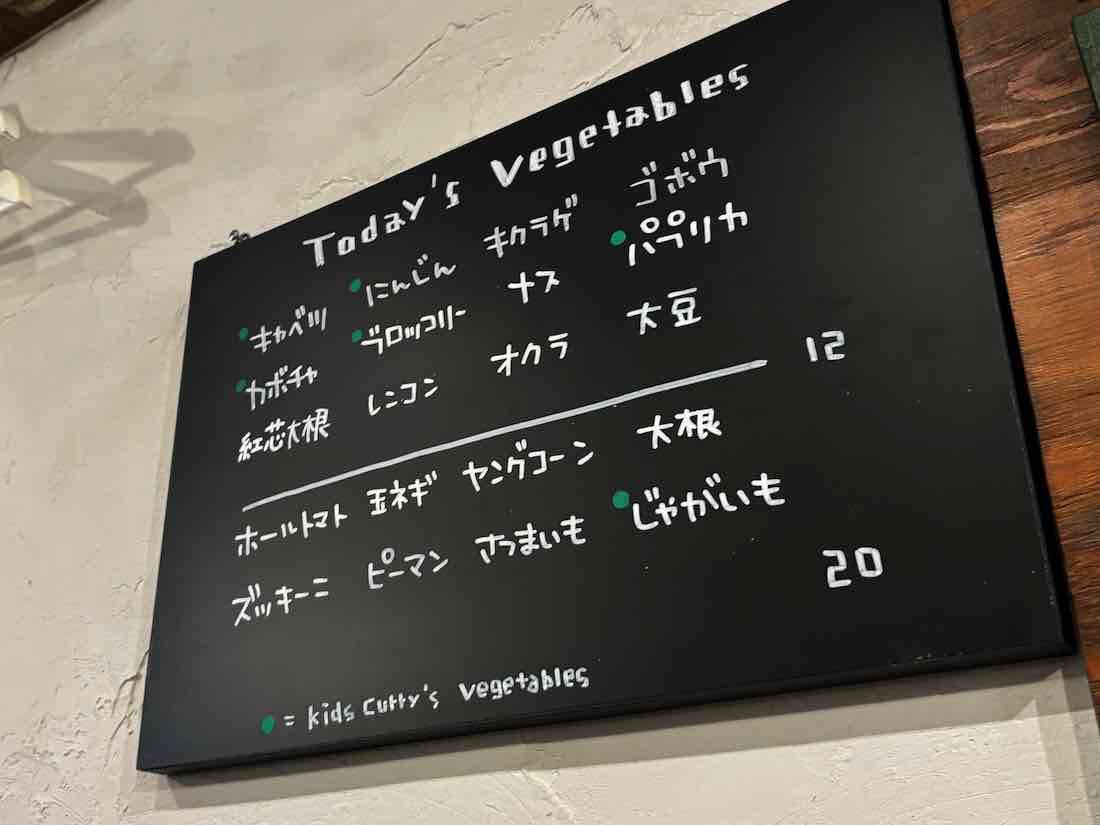 Today's Vegetables
●キャベツ ●にんじん キクラゲ ゴボウ
●カボチャ ●ブロッコリー ナス ●パプリカ
紅芯大根 レンコン オクラ 大豆
12
ホールトマト 玉ネギ ヤングコーン 大根
ズッキーニ ピーマン さつまいも ●じゃがいも
20
● = kids curry's vegetables